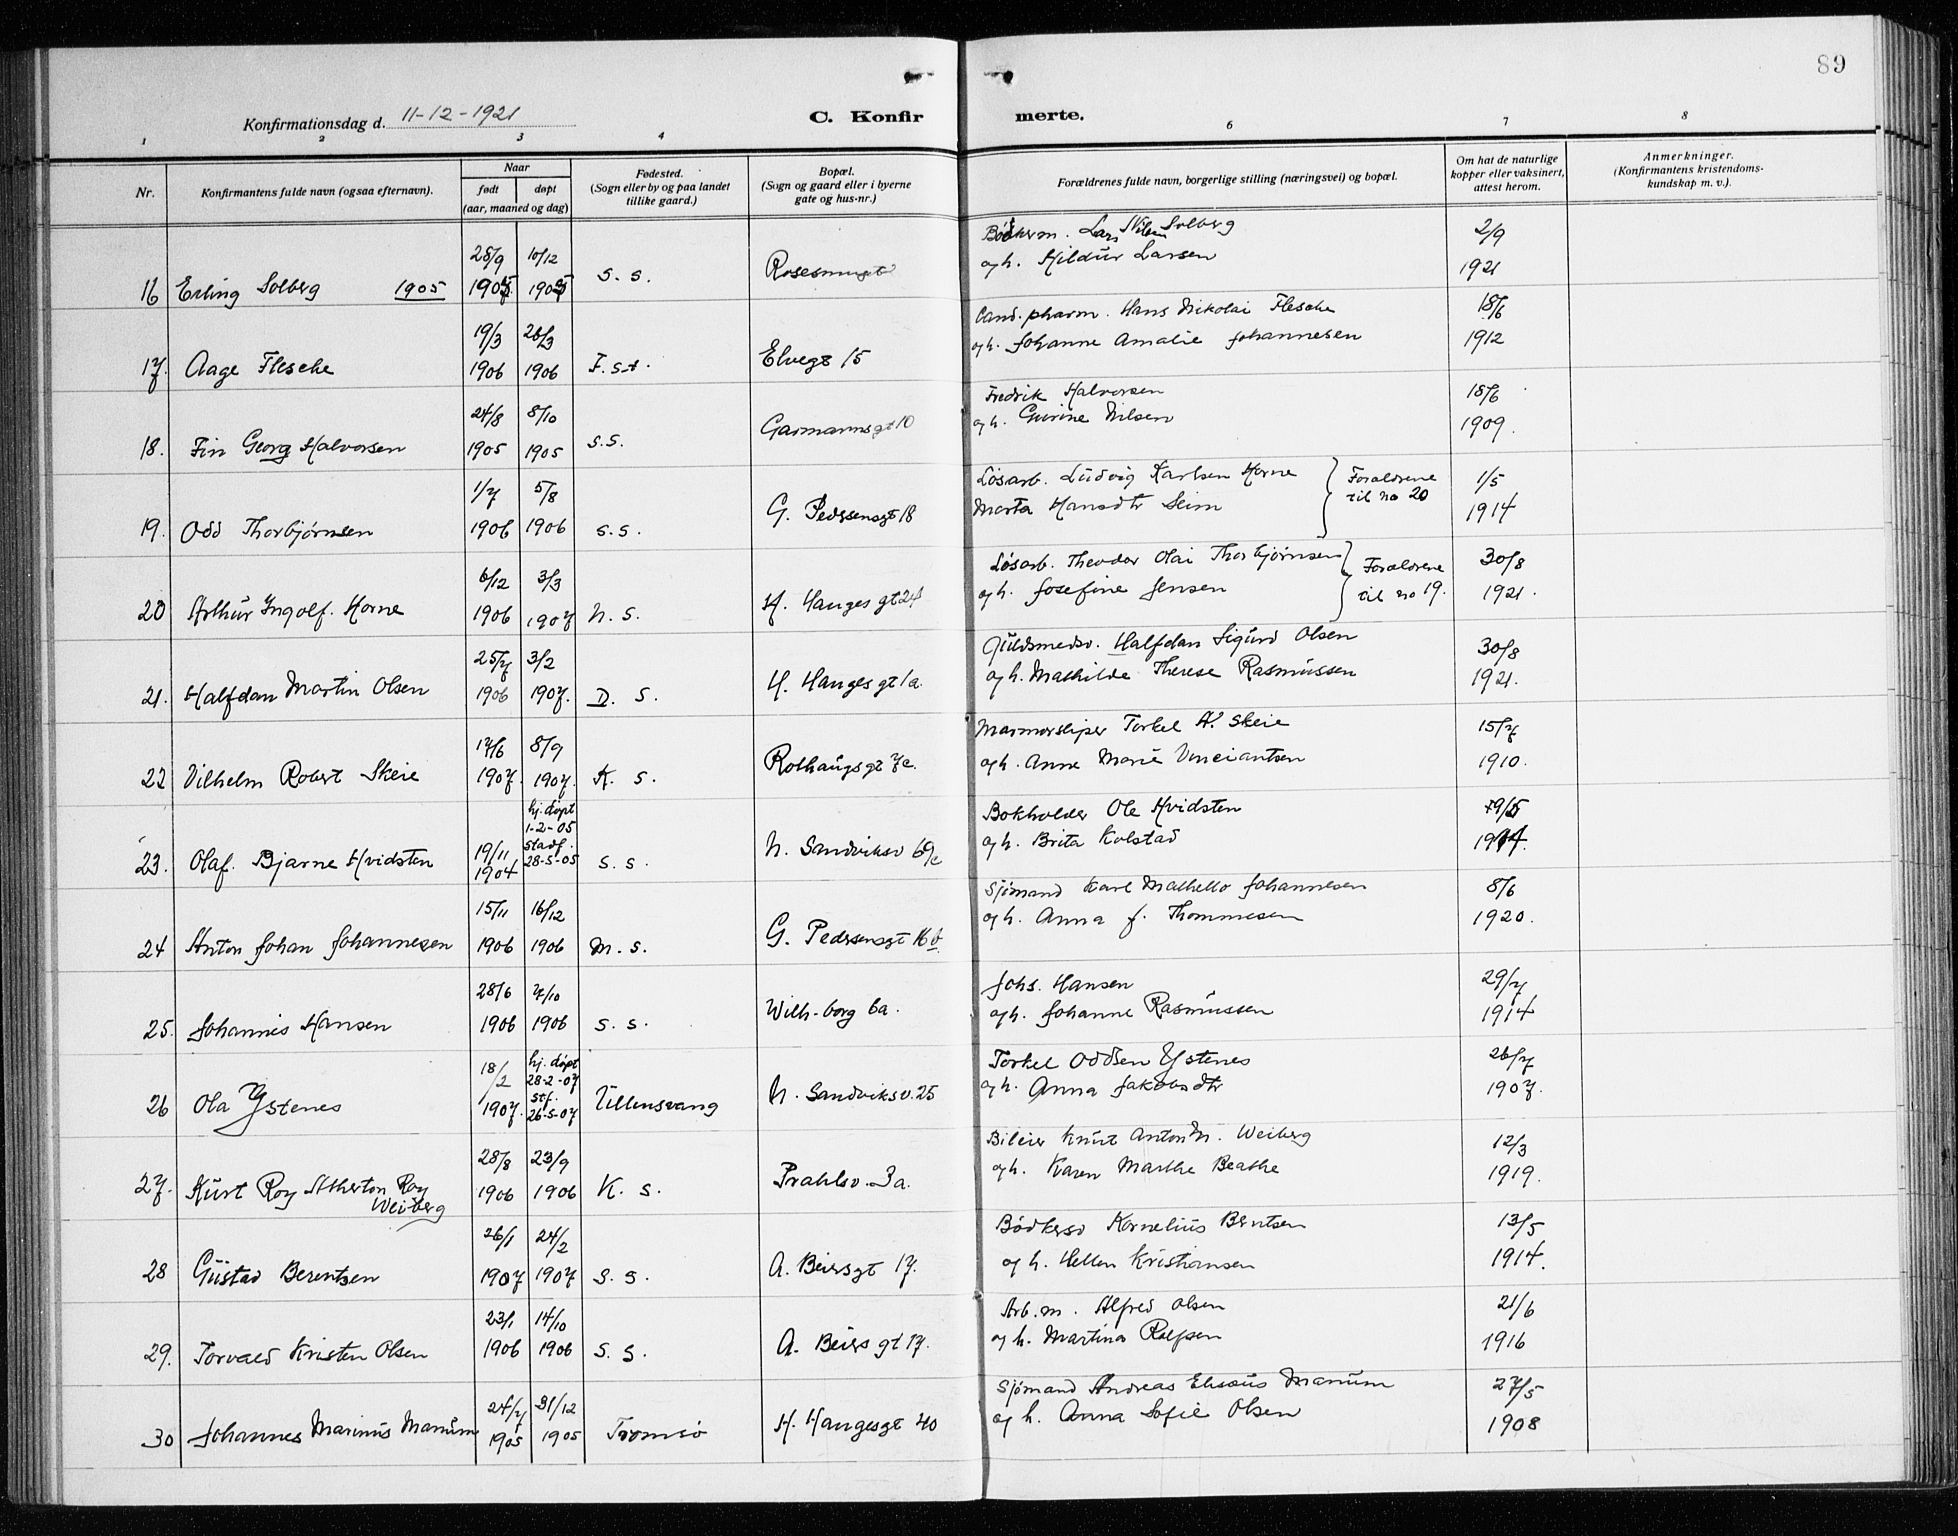 89
Konfirmationsdag d. 11-12-1921 C. Konfirmerte.
1 2 3 4 6 7 8
Nr. Konfirmantens fulde navn (ogsaa efternavn). Naar født døpt (aar, maaned og dag) Fødested. (Sogn eller by og paa landet tillike gaard.) Bopæl. (Sogn og gaard eller i byerne gate og hus-nr.) Forældrenes fulde navn, borgerlige stilling (næringsvei) og bopæl. Om hat de naturlige kopper eller vaksinert, attest herom. Anmerkninger. (Konfirmantens kristendomskundskap m. v.).
28/9 10/12 Bødkerm. Lars Nilsen Solberg 2/9
16 Erling Solberg 1905 1905 1905 S. S. og h. Hildur Larsen 1921
19/3 26/3 Cand. pharm. Hans Nikolai Flesche 18/6
17. Aage Flesche 1906 1906 F. st. Elvegt 15 og h. Johanne Amalie Johannesen 1912
24/8 8/10 Fredrik Halvorsen 18/6
18. Fin Georg Halvorsen 1905 1905 S. S. Garmannsgt 10 og h. Gurine Nilsen 1909.
1/7 5/8 Løsarb. Ludvig Karlsen Horne } Forældrene 1/5
19. Odd Thorbjørnsen 1906 1906 S. S. G. Pedersensgt 18 Marta Hansdtr Seim til no 20 1914
6/12 3/3 Løsarb. Theodor Olai Thorbjørnsen } Forældrene 30/8
20 Arthur Ingolf. Horne 1906 1907 N. S. H. Hauges gt 24 og h. Josefine Jensen til no 19. 1921.
25/7 3/2 Guldsmedsv. Halfdan Sigurd Olsen 30/8
21. Halfdan Martin Olsen 1906 1907. D. S. H. Hauges gt 1a. og h. Mathilde Therese Rasmussen 1921.
17/6 8/9 Marmorsliper Torkel A. Skeie 15/7
22 Vilhelm Robert Skeie 1907. 1907. K. S. Rothaugsgt 7c. og h. Anne Marie 1910.
19/11 hj. døpt 1-2-05 stadf. 28-5-05 Bokholder Ole Hvidsten
23. Olaf. Bjarne Hvidsten 1904 S. S. N. Sandviksv 69c og h. Brita Kolstad
15/11 16/12 Sjømand Karl Mathello Johannesen 8/6
24 Anton Johan Johannesen 1906 1906 M. S. G. Pedersensgt 16 b og h. Anna J. Thommesen 1920.
28/6 7/10 Johs. Hansen 29/7
25. Johannes Hansen 1906 1906 S. S. Wilh-borg 6a. og h. Johanne Rasmussen 1914
18/2 hj. døpt 28-2-07 stf. 26-5-07 Torkel Oddsen Ystenes 26/7
26 Ola Ystenes 1907. Ullensvang N. Sandviksv. 25 og h. Anna Jakobsdtr 1907.
28/8 23/9 Bileier Knut Anton M. Weiberg 12/3
27. Kurt Roy Atherton Roy Weiberg 1906 1906 K. S. Prahlsv. 3a. og h. Karen Marthe Beathe 1919.
26/1 24/2 Bødkersv Kornelius Berntsen 13/5
28 Gustad Berentsen 1907 1907 S. S. A. Beiersgt 17. og h. Hellen Kristiansen 1914.
23/1 14/10 Arb. m. Alfred Olsen 21/6
29. Torvald Kristen Olsen 1906 1906 S. S. A. Beiers gt 17. og h. Martina Rolfsen 1916
24/7 31/12 Sjømand Andreas Elisæus Manum 27/5
30 Johannes Marinus Manum 1905 1905 Tromsø H. Haugesgt 40 og h. Anna Sofie Olsen 1908